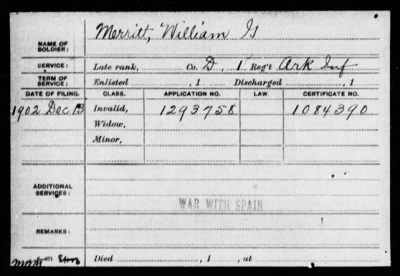 NAME OF SOLDIER: Merritt, William G
SERVICE: Late rank, Co. D, 1 Reg't Ark Inf
TERM OF SERVICE: Enlisted , 1 Discharged , 1
DATE OF FILING. CLASS. APPLICATION NO. LAW. CERTIFICATE NO.
1902 Dec 13 Invalid, 1293758 1084390
Widow,
Minor,
ADDITIONAL SERVICES:
WAR WITH SPAIN
REMARKS:
Died , 1 , at